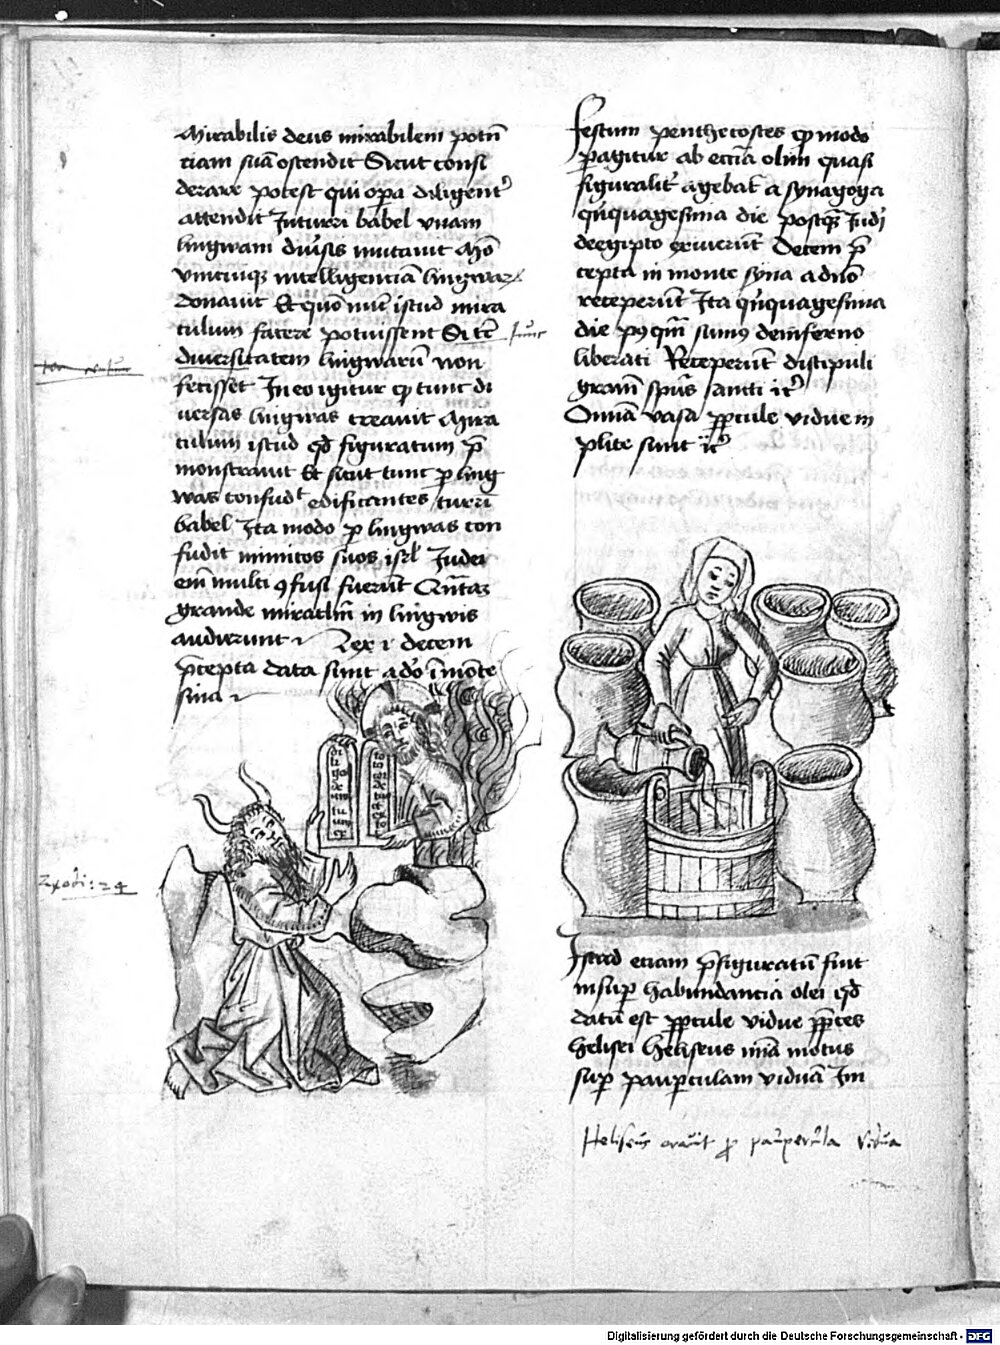 Mirabilis deus mirabilem potñ
ciam suã ostendit Sicut consi
derare potest qui opa diligent᾽
attendit In turri babel vnam
lingwam diũsis mutauit Nõ
vnicuiqȝ intelligenciã lingwarꝝ
donauit Et quõ nũc istud mira
culum facere potuissent Si tc̃
diuersitatem lingwarũ non
fecisset In eo igitur ꝙ tunc di
uersas lingwas creauit Mira
culum istud qd̃ figuratum p̃
monstrauit Et sicut tunc ꝑ ling
was confudᵗ edificantes turri
babel Ita modo ꝑ lingwas con
fudit inimicos suos isrl̃ Iudei
em̃ multi ꝯfusi fuerũt Qñ tã
grande miraclm̃ in lingwis
audierunt
Lex decem
p̃cepta data sunt a dõ ĩ mõte
sina
Exodi: 24
Festum penthecostes ꝙ modo
ꝑagitur ab ecc̃ia olim quasi
figuralit᾽ agebat᾽ a synagoga
q̃nquagesima die postqȝ Iudi
de egipto exiuerũt Decem p̃
cepta in monte syna a dño
receperũt Ita q̃nquagesima
die p9qm̃ sum9 de inferno
liberati Receperũt discipuli
gram̃ spũs sancti ⁊c᾽
Omnia vasa ꝑꝑcule vidue im
plete sunt ⁊c᾽
Istud eciam p̃figuratũ fuit
in suꝑ habundancia olei qd̃
datũ est ꝑꝑcule vidue
helisei Heliseus m̃ia motus
suꝑ pauꝑculam viduã Im
Heliseus orauit ꝓ paupercula vidua
Digitalisierung gefördert durch die Deutsche Forschungsgemeinschaft - DFG